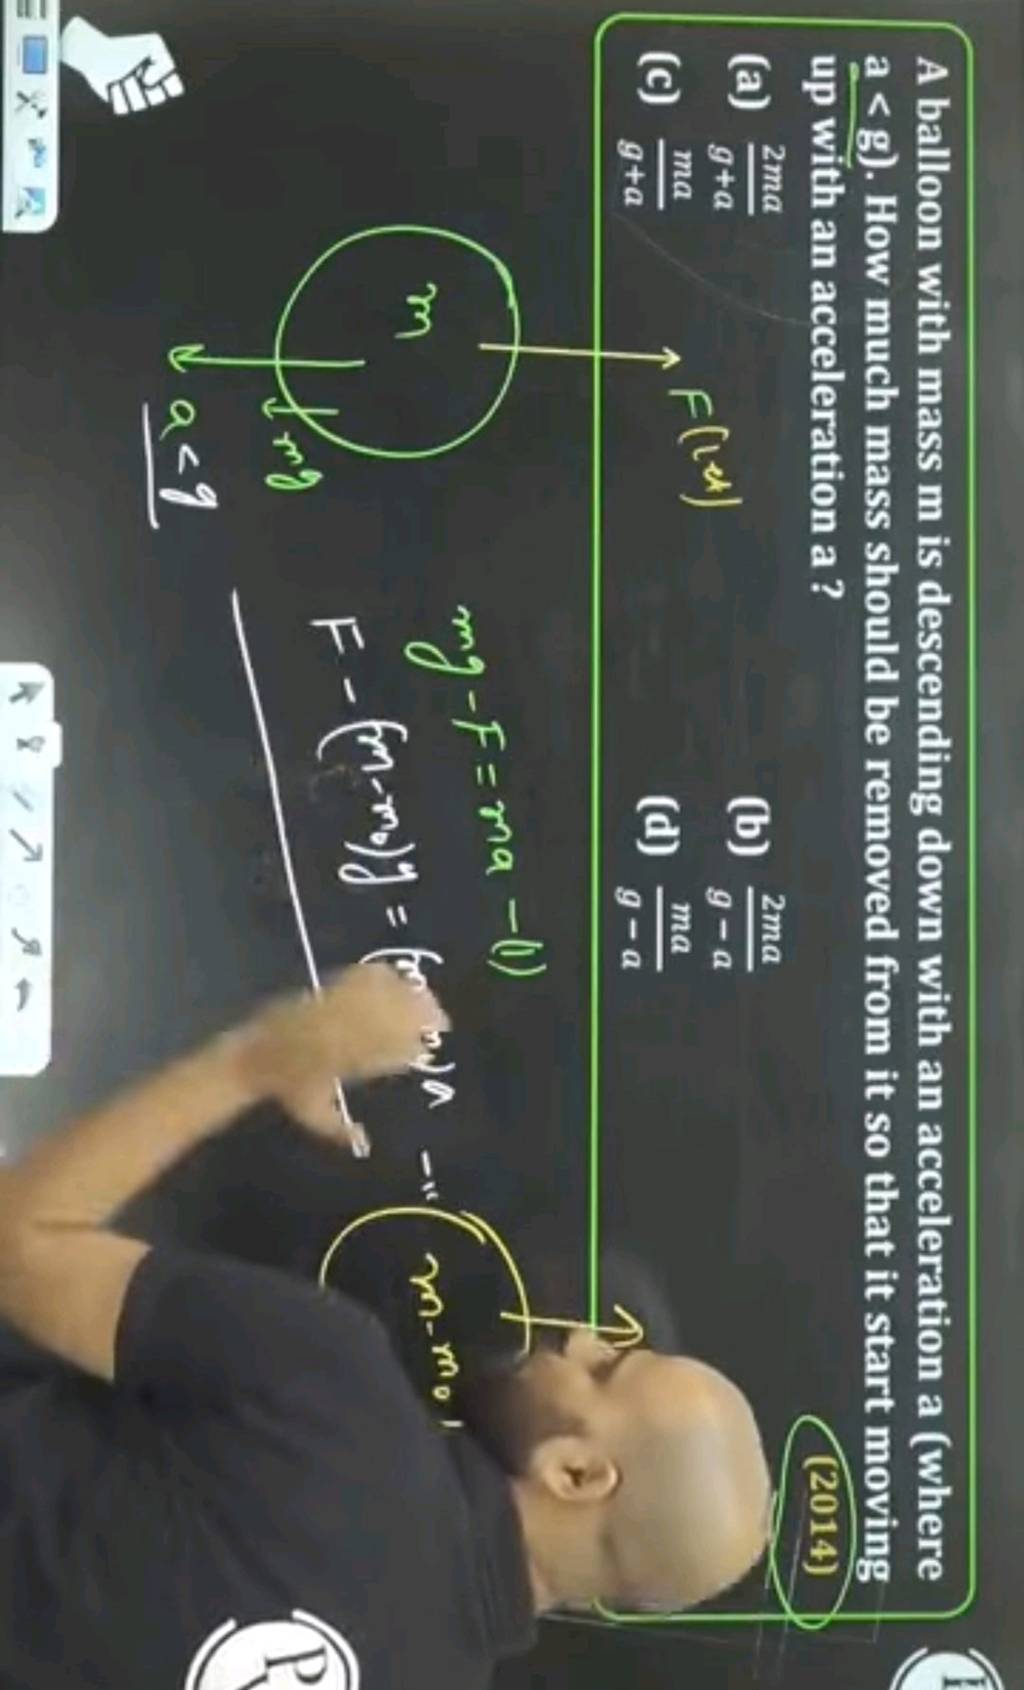 A balloon with mass m is descending down with an acceleration a (where
a < g). How much mass should be removed from it so that it start moving
up with an acceleration a ?
(2014)
(a) 2ma/g+a
(b) 2ma/g − a
(c) ma/g+a
(d) ma/g − a
F(let)
m
mg
a < g
mg - F = ma - (1)
F - (m-m₀)g =
a - "
m-m₀